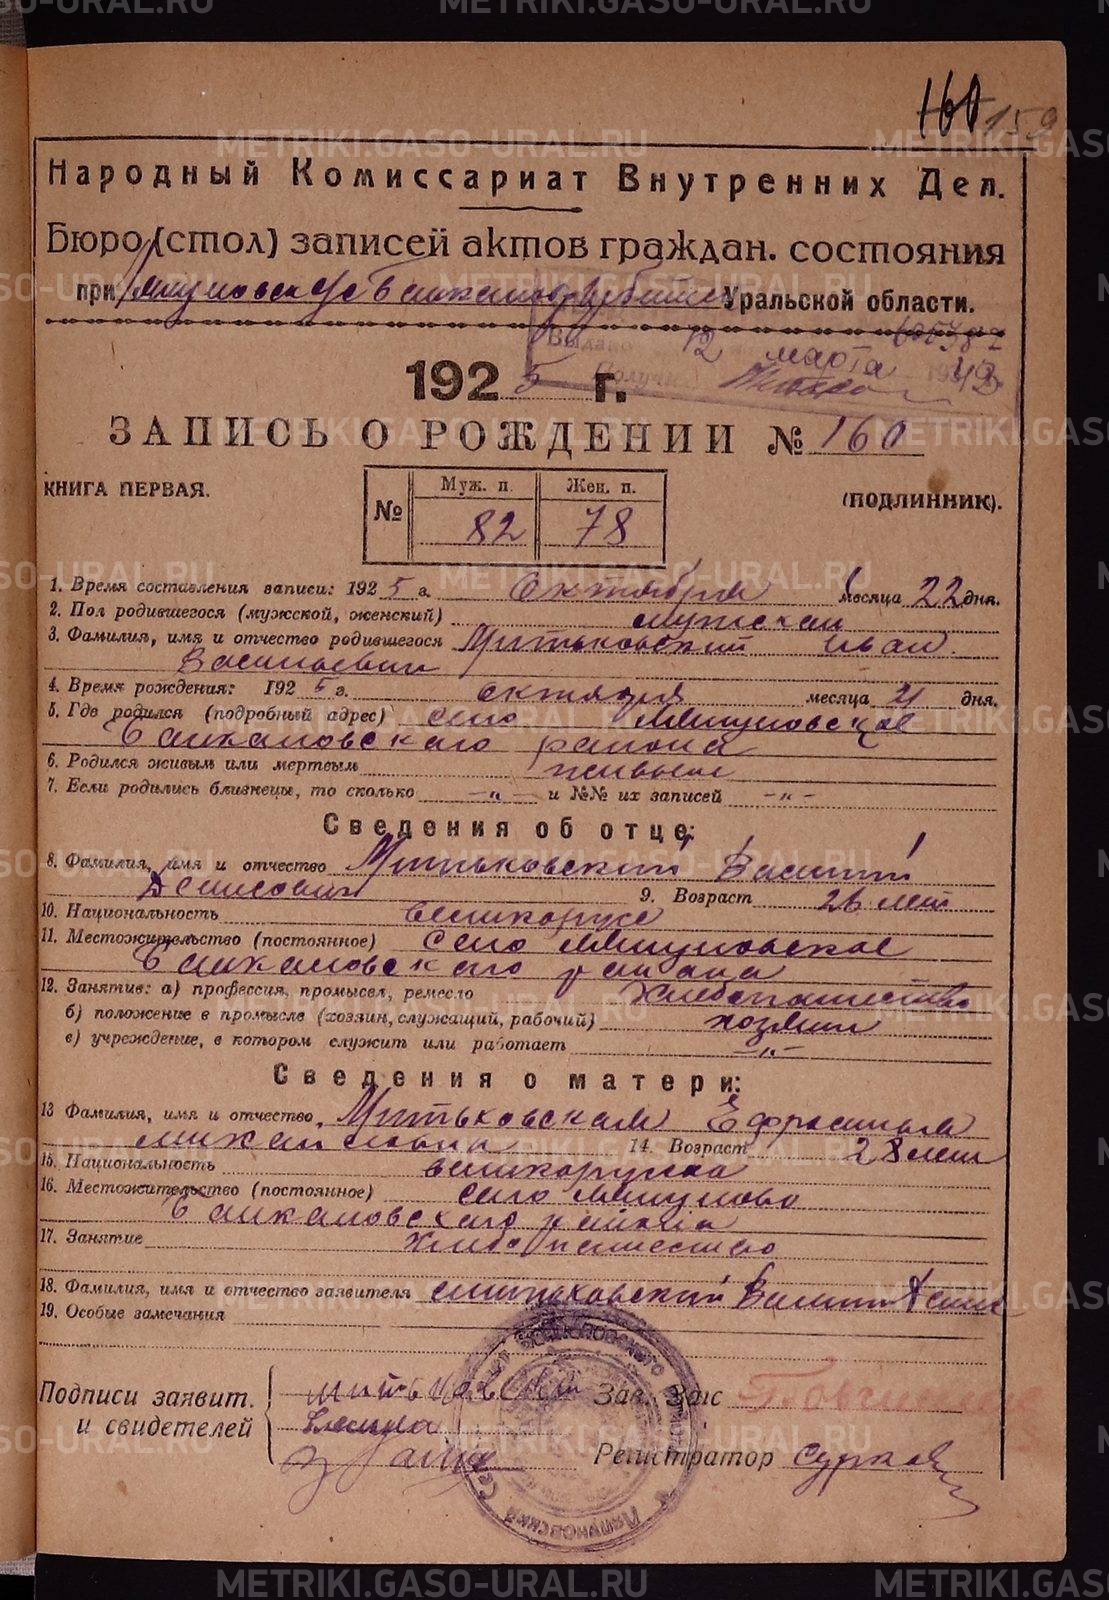 160 159
Народный Комиссариат Внутренних Дел.
Бюро (стол) записей актов граждан. состояния
при Уральской области.
Выдано 12 марта
192 5 г.
ЗАПИСЬ О РОЖДЕНИИ № 160
КНИГА ПЕРВАЯ.
№ Муж. п. Жен. п.
82 78
(подлинник).
1. Время составления записи: 192 5 г. Октября месяца 22 дня.
2. Пол родившегося (мужской, женский) мужской
3. Фамилия, имя и отчество родившегося Митьковский Иван
Васильевич
4. Время рождения: 192 5 г. октября месяца 21 дня.
5. Где родился (подробный адрес) село
Байкаловского района
6. Родился живым или мертвым живым
7. Если родились близнецы, то сколько -"- и №№ их записей -"-
Сведения об отце:
8. Фамилия, имя и отчество Митьковский Василий
Денисович 9. Возраст 26 лет
10. Национальность великорусс
11. Местожительство (постоянное) село
Байкаловского района
12. Занятие: а) профессия, промысел, ремесло Хлебопашество
б) положение в промысле (хозяин, служащий, рабочий) хозяин
в) учреждение, в котором служит или работает -"-
Сведения о матери:
13 Фамилия, имя и отчество Митьковская Ефросинья
Михайловна 14. Возраст 28 лет
15. Национальность великоруска
16. Местожительство (постоянное) село
Байкаловского района
17. Занятие Хлебопашество
18. Фамилия, имя и отчество заявителя Митьковский Василий Денис
19. Особые замечания
Подписи заявит. и свидетелей
Зав. Загс
Регистратор Сурков
METRIKI.GASO-URAL.RU